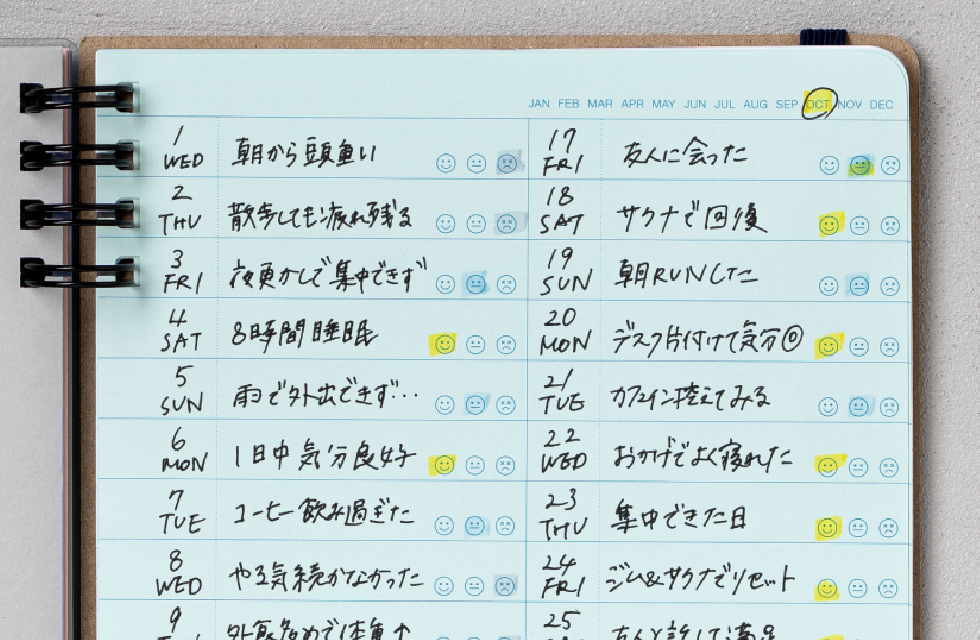 JAN FEB MAR APR MAY JUN JUL AUG SEP OCT NOV DEC
1 WED 朝から頭重い
2 THU 散歩しても疲れ残る
3 FRI 夜更かしで集中できず
4 SAT 8時間睡眠
5 SUN 雨で外出できず…
6 MON 1日中気分良好
7 TUE コーヒー飲み過ぎた
8 WED やる気続かなかった
9 外食多めで体重↑
17 FRI 友人に会った
18 SAT サウナで回復
19 SUN 朝RUNした
20 MON デスク片付けて気分◎
21 TUE カフェイン控えてみる
22 WED おかげでよく寝れた
23 THU 集中できた日
24 FRI ジム&サウナでリセット
25 友人と話して満足